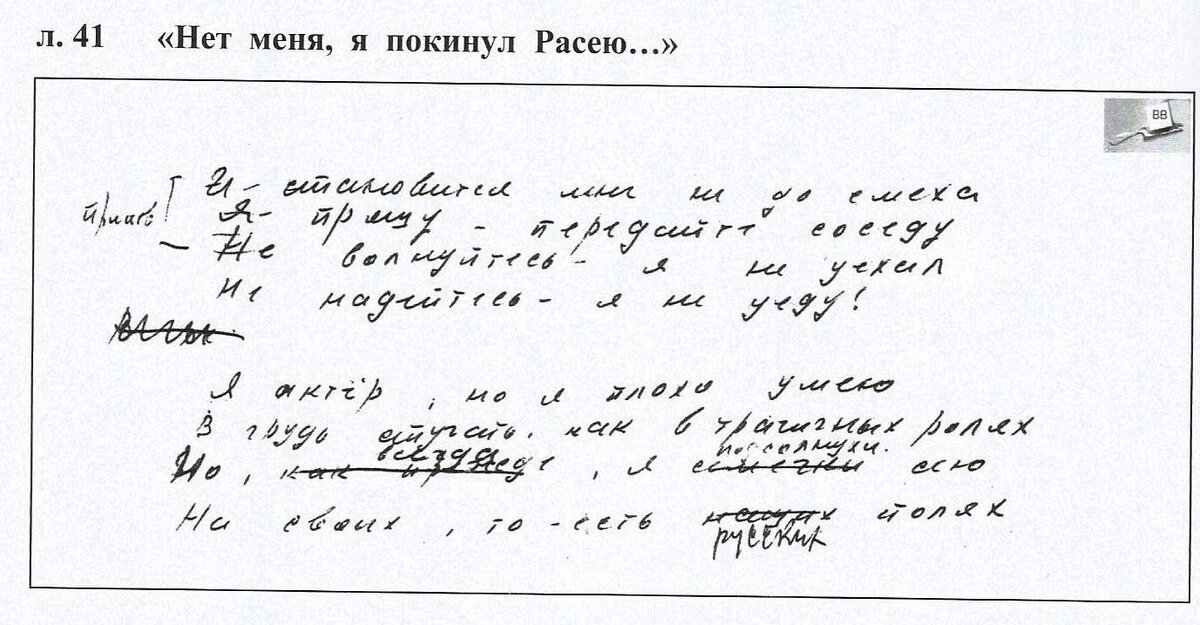 л. 41 «Нет меня, я покинул Расею...»
ВВ
И - становится мне не до смеха
припев Я - прощу - передайте соседу
Не волнуйтесь - я не уехал
Не надейтесь - я не уеду!
Я актёр, но я плохо умею
В грудь стучать, как в трагичных ролях
всегда подсолнухи
Но, как прежде, я семечки сею
На своих, то-есть наших полях
русских